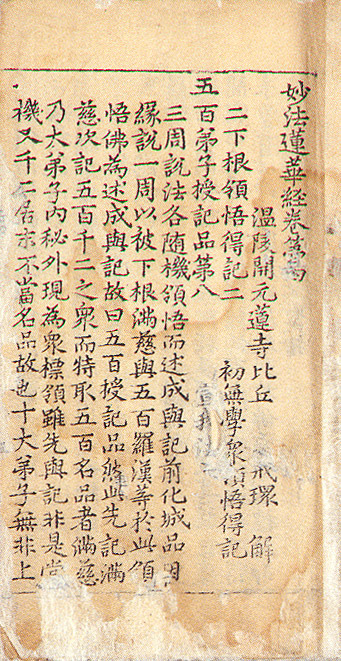 妙法蓮華經卷第四
溫陵開元蓮寺比丘 戒環 解
二下根領悟得記二 初無學衆領悟得記
五百弟子授記品第八
三周說法各随機領悟而述成與記前化城品因
緣說一周以被下根滿慈與五百羅漢等於此領
悟佛為述成與記故曰五百授記品然此先記滿
慈次記五百千二之衆而特取五百名品者滿慈
乃大弟子內秘外現為衆標領雖先與記非是當
機又千二居末不當名品故也十大弟子無非上